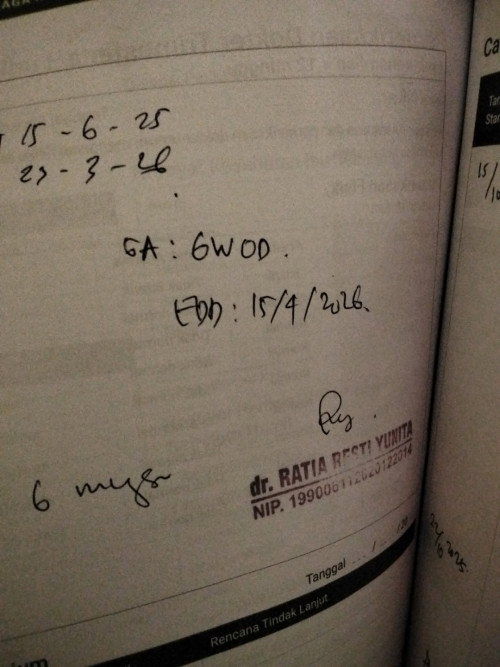 15 - 6 - 25
23 - 3 - 26
GA : 6W0D.
EDD : 15/4/2026.
dr. RATIA RESTI YUNITA
NIP. 199006112020122014
6 mgg
Tanggal ... / ... /20
Rencana Tindak Lanjut
Ca
Tan
Stan
15/
10
22/
10 2025.